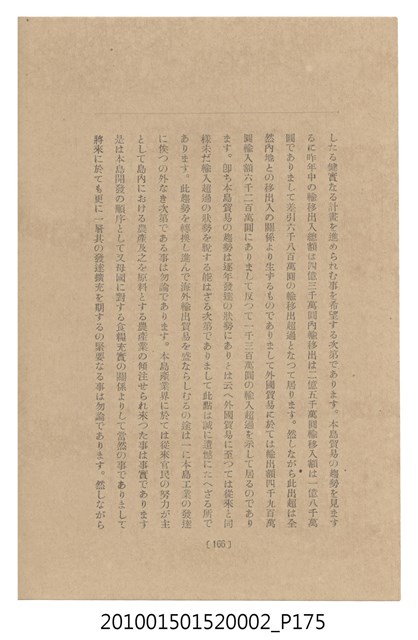 したる健實なる計畫を進められむ事を希望する次第であります。本島貿易の趨勢を見ます
るに昨年中の輸移出入總額は四億三千萬圓内輸移出は二億五千萬圓輸移入額は一億八千萬
圓でありまして差引六千八百萬圓の輸移出超過となつて居ります。然しながら此出超は全
然内地との移出入の關係より生ずるものでありまして外國貿易に於ては輸出額四千九百萬
圓輸入額六千二百萬圓にありまして反つて一千三百萬圓の輸入超過を示して居るのであり
ます。卽ち本島貿易の趨勢は逐年發達の狀勢にありとは云へ外國貿易に至つては從來と同
樣未だ輸入超過の狀勢を脫する能はざる次第でありまして此點は誠に遺憾にたへざる所で
あります。此趨勢を轉換し進んで海外輸出貿易を盛ならしむるの途は一に本島工業の發達
に俟つの外なき次第である事は勿論であります。本島產業界に於ては從來官民の努力が主
として島内における農產及之を原料とする農產業の傾注せられ來つた事は事實であります
是は本島開發の順序として又母國に對する食糧充實の關係よりして當然の事でありとして
將來に於ても更に一層其の發達擴充を期するの緊要なる事は勿論であります。然しながら
〔166〕
201001501520002_P175